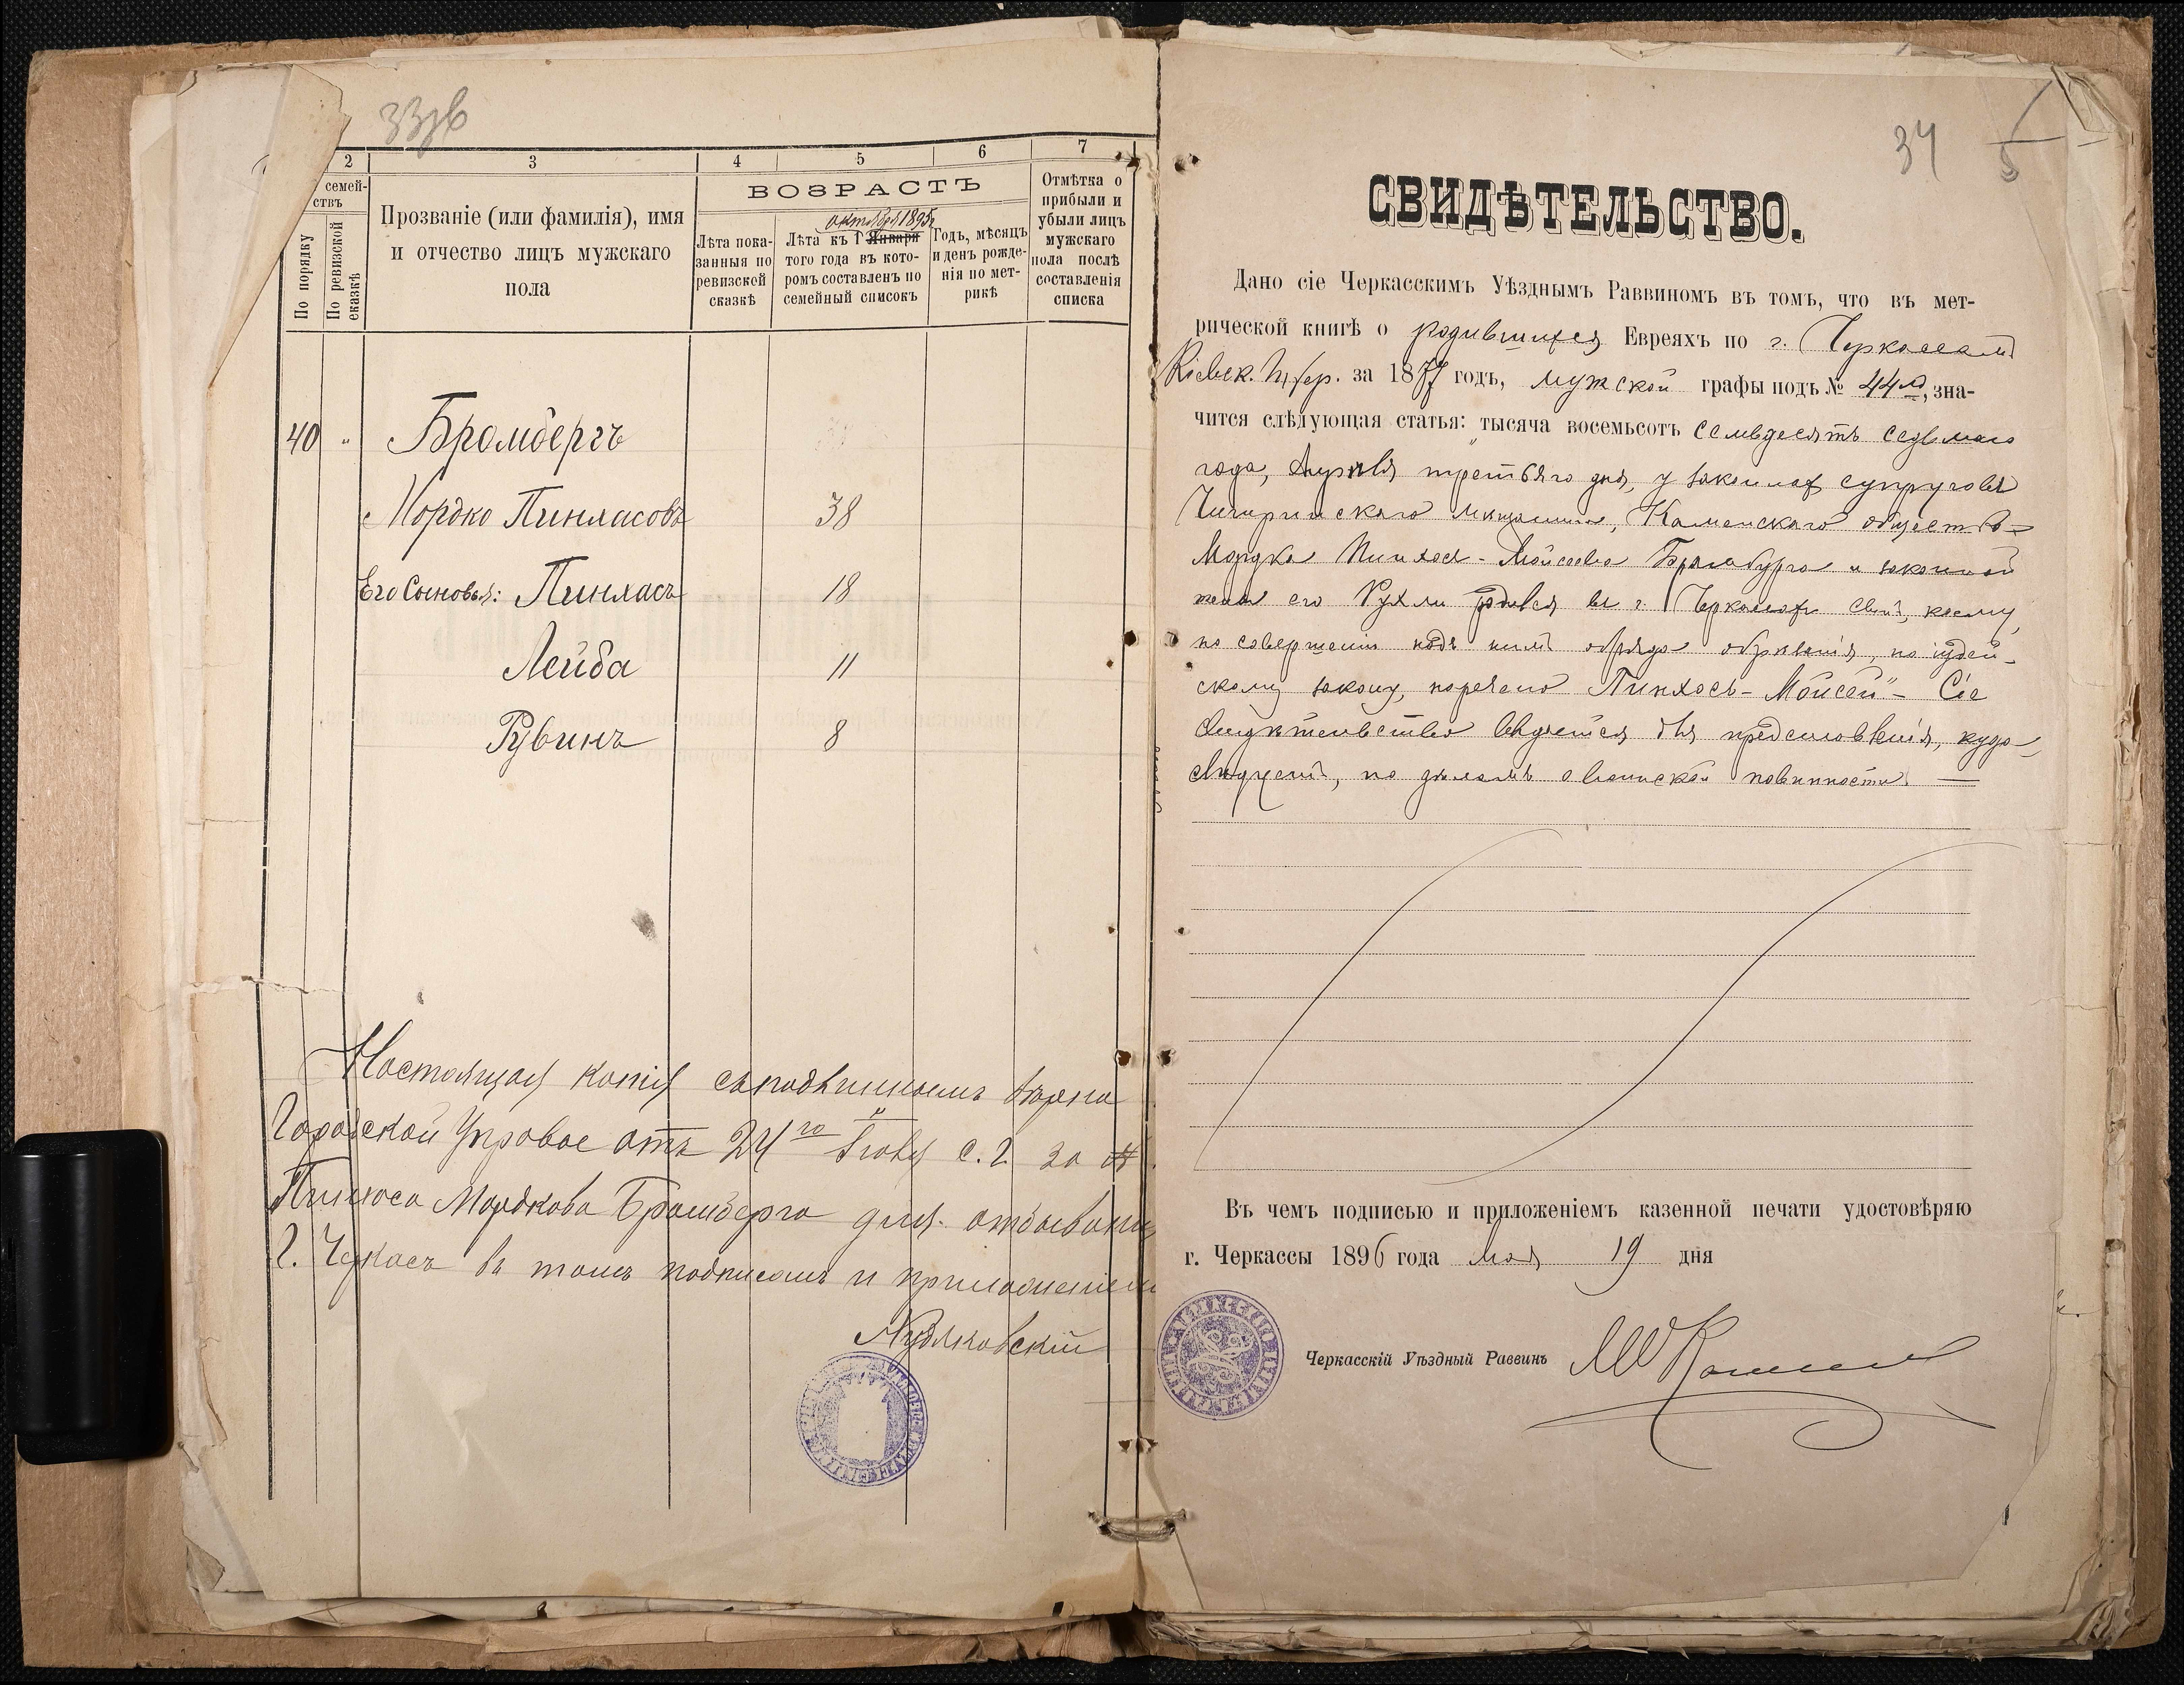 33об
2
3
4
5
6
7
семей-
ствъ
По порядку
По ревизской
сказкѣ
Прозваніе (или фамилія), имя
и отчество лицъ мужскаго
пола
ВОЗРАСТЪ
Лѣта пока-
занныя по
ревизской
сказкѣ
октября 1895 г.
Лѣта къ 1 Января
того года въ кото-
ромъ составленъ по
семейный списокъ
Годъ, мѣсяцъ
и день рожде-
нія по мет-
рикѣ
Отмѣтка о
прибыли и
убыли лицъ
мужскаго
пола послѣ
составленія
списка
40 " Бромбергъ
Мордко Пинхасовъ 38
Его Сыновья: Пинхасъ 18
Лейба 11
Рувинъ 8
Настоящая копія съ подлиннымъ вѣрна
Городской Управою отъ 24го с. г. за №
Пинхоса Мордкова Бромберга для отбыванія
г. Черкасъ въ томъ подписомъ и приложеніемъ
34
5
СВИДѢТЕЛЬСТВО.
Дано сіе Черкасскимъ Уѣзднымъ Раввиномъ въ томъ, что въ мет-
рической книгѣ о родившихся Евреяхъ по г. Черкассамъ
Кіевск. Губер. за 1877 годъ, мужской графы подъ № 44м, зна-
чится слѣдующая статья: "тысяча восемьсотъ семьдесятъ седьмаго
года, Апрѣля третьяго дня, у законныхъ супруговъ
Чигиринскаго мѣщанина, Каменскаго общества
Мордка Пинхоса-Мойсеева Бромберга и законной
жены его Рухли родился въ г. Черкассахъ сынъ, коему,
по совершеніи надъ нимъ обряда обрѣзанія, по іудей-
скому закону, наречено Пинхосъ-Мойсей" - Сіе
свидѣтельство выдается для представленія, куда
слѣдуетъ, по дѣламъ о воинской повинности. =
Въ чемъ подписью и приложеніемъ казенной печати удостовѣряю
г. Черкассы 1896 года мая 19 дня
Черкасскій Уѣздный Раввинъ